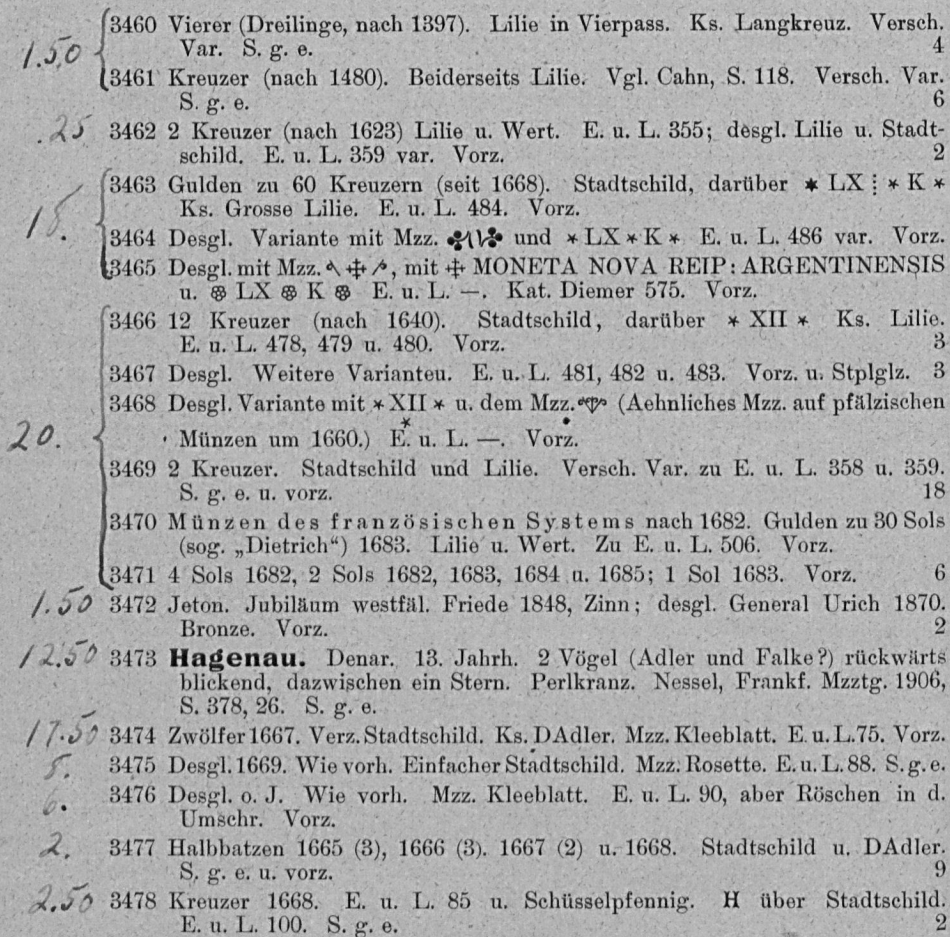 3460 Vierer (Dreilinge, nach 1397). Lilie in Vierpass. Ks. Langkreuz. Versch.
1.50 Var. S. g. e. 4
3461 Kreuzer (nach 1480). Beiderseits Lilie. Vgl. Cahn, S. 118. Versch. Var.
S. g. e. 6
.25 3462 2 Kreuzer (nach 1623) Lilie u. Wert. E. u. L. 355; desgl. Lilie u. Stadt-
schild. E. u. L. 359 var. Vorz. 2
3463 Gulden zu 60 Kreuzern (seit 1668). Stadtschild, darüber * LX ⁝ * K *
Ks. Grosse Lilie. E. u. L. 484. Vorz.
3464 Desgl. Variante mit Mzz. und * LX * K * E. u. L. 486 var. Vorz.
3465 Desgl. mit Mzz. , mit MONETA NOVA REIP: ARGENTINENSIS
u. ❁ LX ❁ K ❁ E. u. L. —. Kat. Diemer 575. Vorz.
3466 12 Kreuzer (nach 1640). Stadtschild, darüber * XII * Ks. Lilie.
E. u. L. 478, 479 u. 480. Vorz. 3
3467 Desgl. Weitere Varianteu. E. u. L. 481, 482 u. 483. Vorz. u. Stplglz. 3
3468 Desgl. Variante mit * XII * u. dem Mzz. (Aehnliches Mzz. auf pfälzischen
20. Münzen um 1660.) E. u. L. —. Vorz.
3469 2 Kreuzer. Stadtschild und Lilie. Versch. Var. zu E. u. L. 358 u. 359.
S. g. e. u. vorz. 18
3470 Münzen des französischen Systems nach 1682. Gulden zu 30 Sols
(sog. „Dietrich“) 1683. Lilie u. Wert. Zu E. u. L. 506. Vorz.
3471 4 Sols 1682, 2 Sols 1682, 1683, 1684 u. 1685; 1 Sol 1683. Vorz. 6
1.50 3472 Jeton. Jubiläum westfäl. Friede 1848, Zinn; desgl. General Urich 1870.
Bronze. Vorz. 2
12.50 3473 Hagenau. Denar. 13. Jahrh. 2 Vögel (Adler und Falke?) rückwärts
blickend, dazwischen ein Stern. Perlkranz. Nessel, Frankf. Mzztg. 1906,
S. 378, 26. S. g. e.
17.50 3474 Zwölfer 1667. Verz. Stadtschild. Ks. DAdler. Mzz. Kleeblatt. E. u. L. 75. Vorz.
3475 Desgl. 1669. Wie vorh. Einfacher Stadtschild. Mzz. Rosette. E. u. L. 88. S. g. e.
6. 3476 Desgl. o. J. Wie vorh. Mzz. Kleeblatt. E. u. L. 90, aber Röschen in d.
Umschr. Vorz.
2. 3477 Halbbatzen 1665 (3), 1666 (3). 1667 (2) u. 1668. Stadtschild u. DAdler.
S. g. e. u. vorz. 9
2.50 3478 Kreuzer 1668. E. u. L. 85 u. Schüsselpfennig. H über Stadtschild.
E. u. L. 100. S. g. e. 2